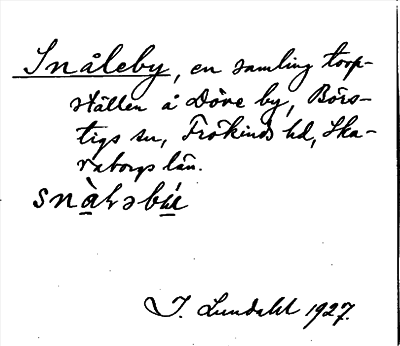 Snåleby, en samling torp-
ställen å Döve by, Börs-
tigs sn, Frökinds hd, Ska-
raborgs län.
snàləbý
I. Lundahl 1927.